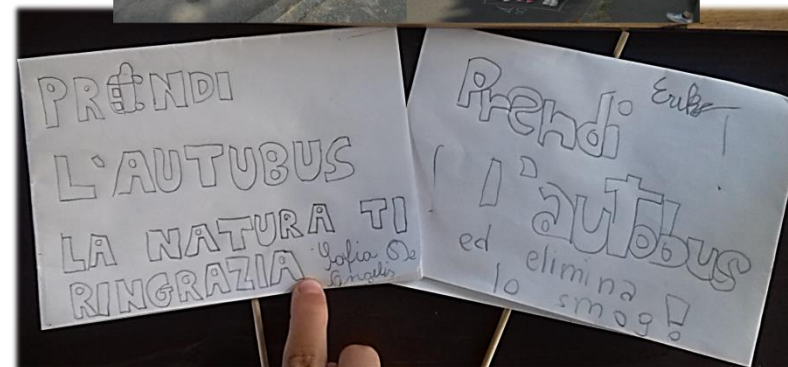 PRENDI
L'AUTUBUS
LA NATURA TI
RINGRAZIA
Sofia De
Angelis
Prendi
Erika
l'autobus
ed elimina
lo smog!